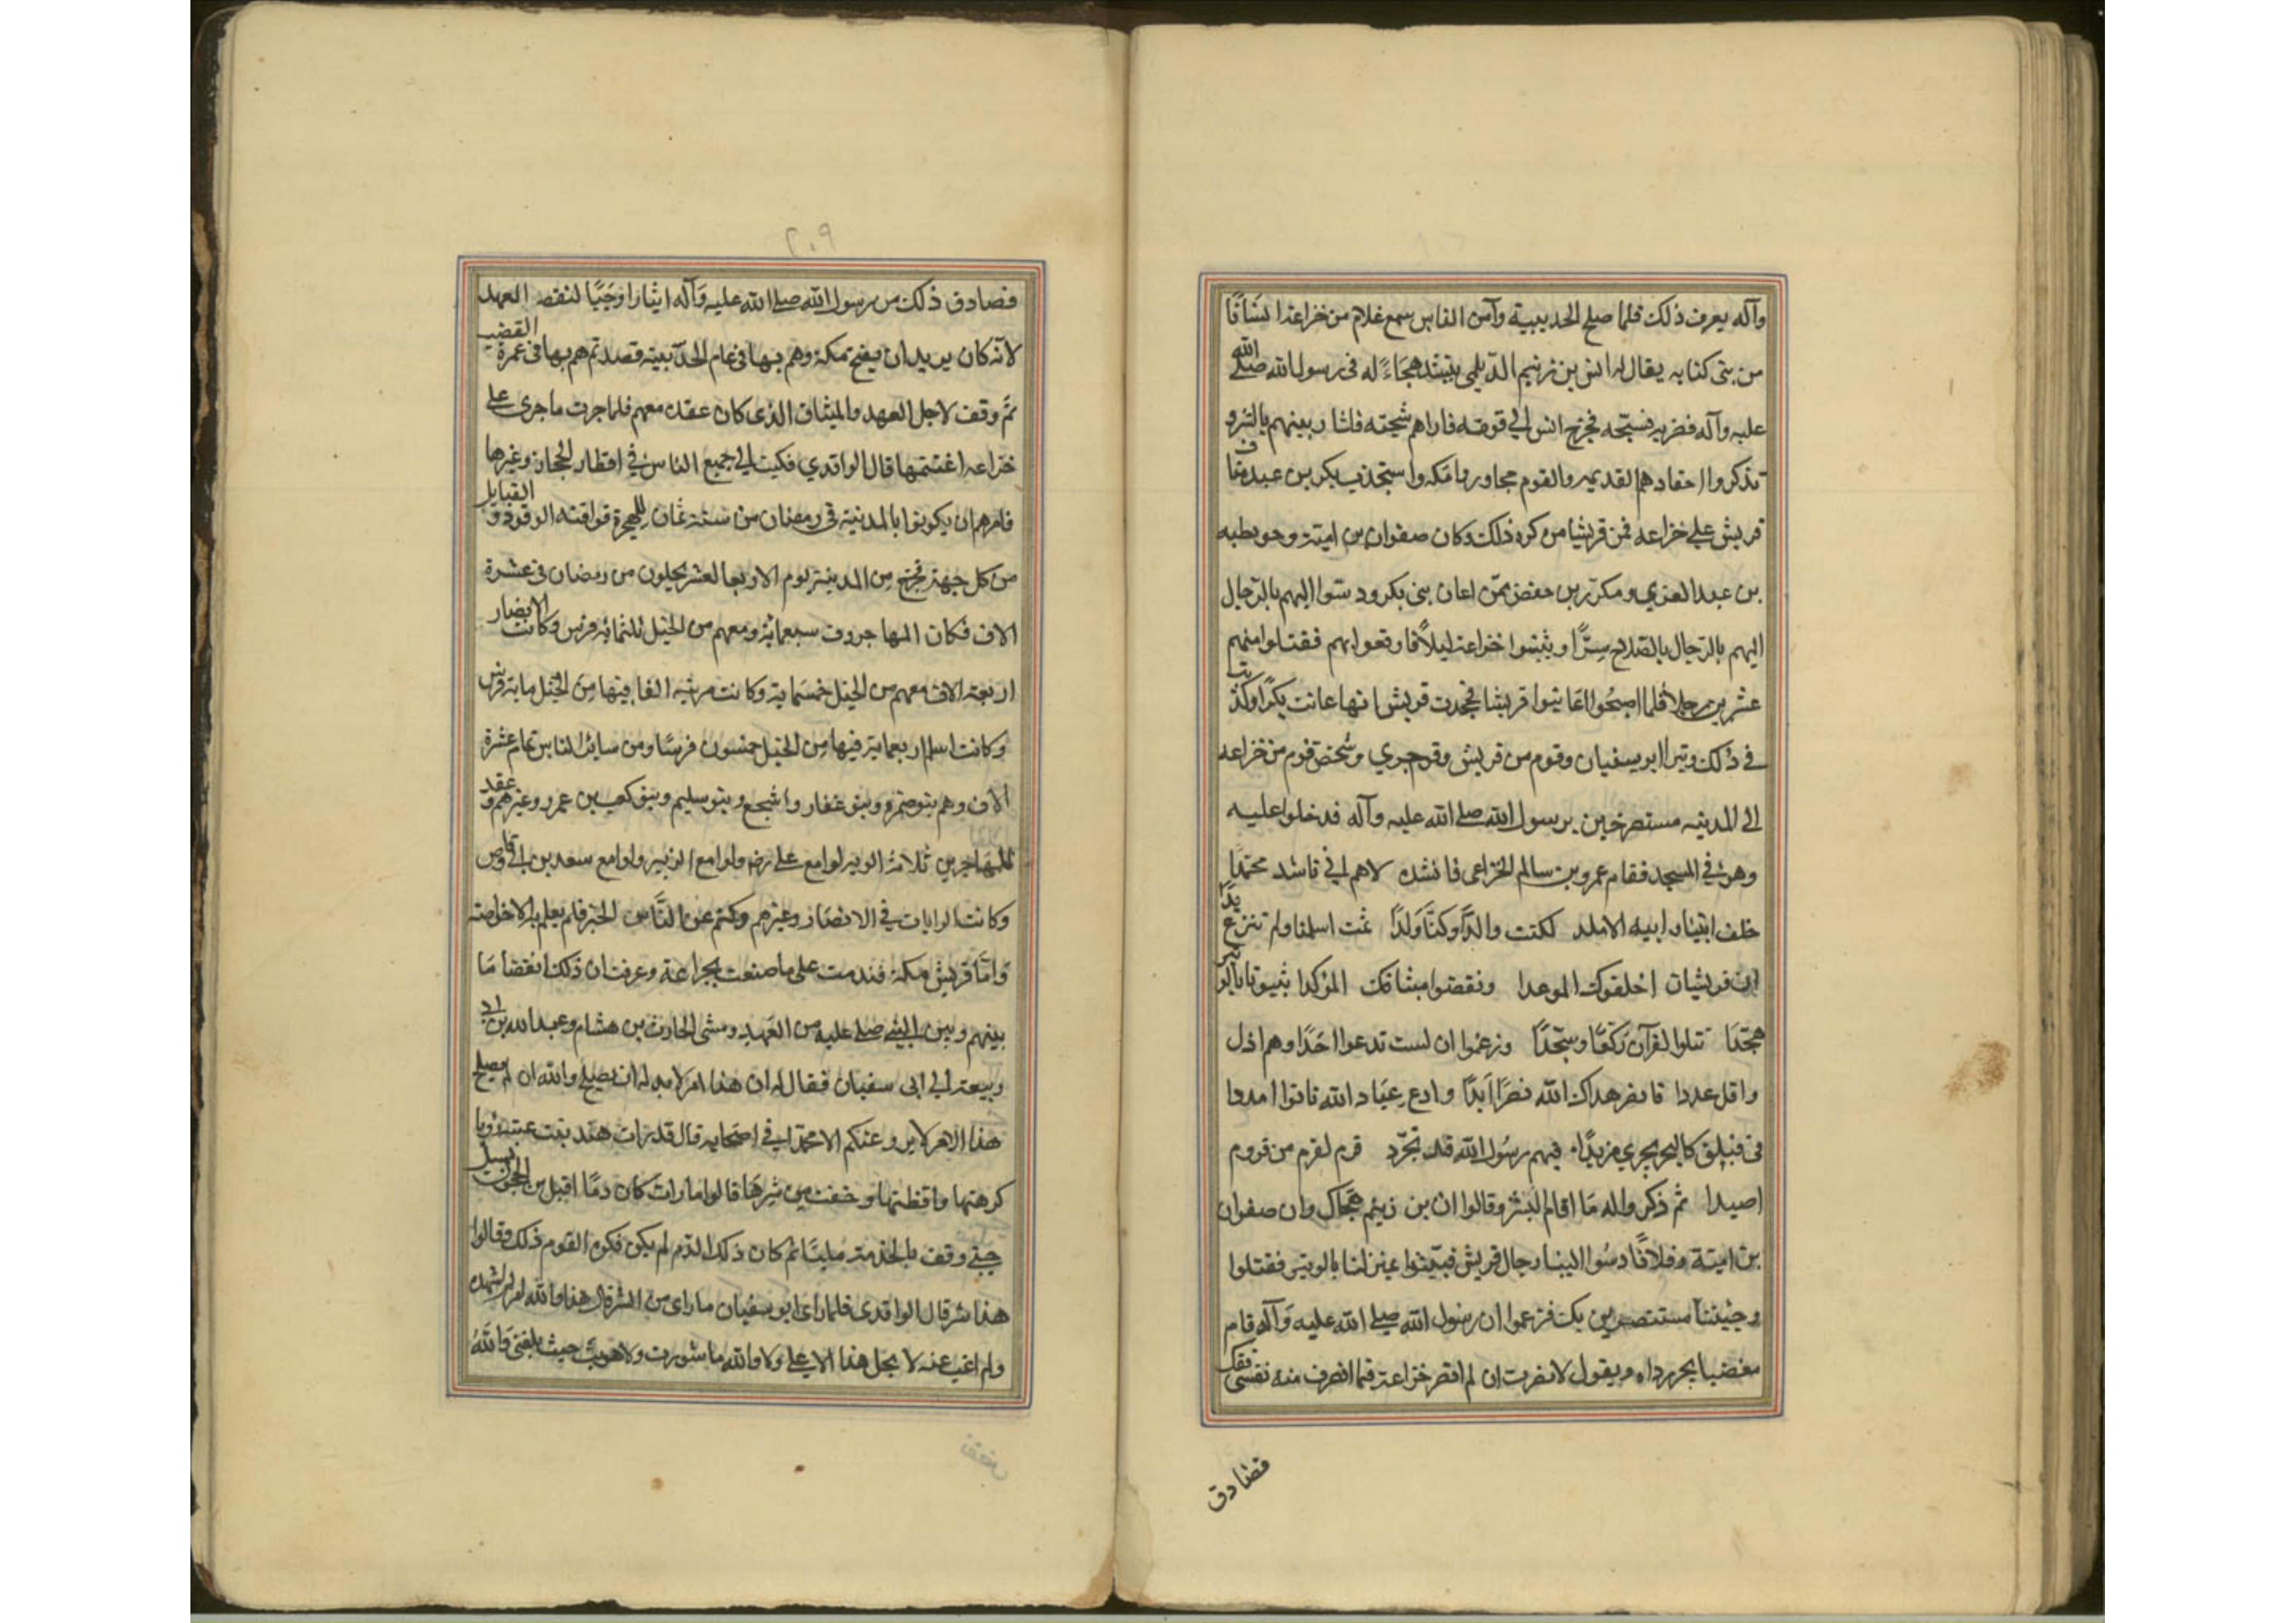 وآله يعرف ذلك فلما صلح الحديبية وآمن الناس سمع غلام من خزاعة انسانًا
من بنى كنابه يقال له انس بن زنيم الديلمى ينشد هجاءً له فى رسول الله صلى الله
عليه وآله فضربه فشجّه فخرج انس الى قومه فاراهم شجته فثار بينهم بالشر و
تذكروا احقادهم القديمه والقوم مجاوروا مكه واستنجدت بكر بن عبد مناف
قريش على خزاعه فمن قريشا من كره ذلك وكان صفوان بن امية وحويطبه
بن عبد العزي ومكرز بن حفص ممّن اعان بنى بكر ودسّوا اليهم بالرجال
اليهم بالرجال بالصلاح سرًّا وبيتوا خزاعة ليلاً فاوقعوا بهم فقتلوا منهم
عشرين رجلا فلما اصبحوا عاتبوا قريشا فجحدت قريش انها عانت بكرًا وكذبت
فى ذلك وتبرا ابو سفيان وقوم من قريش وقد جري وشخص قوم من خزاعه
الى المدينه مستصرخين برسول الله صلى الله عليه وآله فدخلوا عليه
وهو فى المسجد فقام عمرو بن سالم الخزاعى فانشده لاهم انى ناشد محمدًا
حلف ابينا وابيه الاتلد لكنت والدًا وكنّا وَلدًا ثمت اسلمنا ولم ننزع يدًا
ان قريشا اخلفوك الموعدا ونقضوا ميثاقك المؤكدا بيتونا بالوتير
هجّدًا نتلوا القرآن ركّعًا وسجّدًا وزعموا ان لست تدعوا احَدًا وهم اذل
واقل عددا فانصر هداك الله نصرًا ابَدًا وادع عباد الله ياتوا مددا
فى فيلق كالبحر يجري مزبدًا فيهم رسُول الله قد تجرّد قرم لقرم من قروم
اصيدا ثم ذكر والله مَا اقام الشر وقالوا ان بن زنيم هجاك وان صفوان
بن امية وفلانًا دسُوا الينا رجال قريش فبيّتوا عنزلنا بالوتير فقتلوا
وجيننا مستنصرين بك فزعموا ان رسول الله صلى الله عليه وآله قام
مغضبا يجر رداه ويقول لا نصرت ان لم انصر خزاعة فيما انصرف منه نفسى
فصادق
٢٠٩
فصادق ذلك من رسول الله صلى الله عليه وآله ايثارا وجبًا لنقض العهد
لانه كان يريد ان يفتح مكة وهم بها فى عام الحديبيه فصد ثم هم بها فى عمرة القضيه
ثم وقف لاجل العهد والميثاق الذى كان عقده معهم فلما جرت ما جرى على
خزاعه اغتنمها قال الواقدي فكتب الى جميع الناس فى اقطار الحجاز وغيرها
فامرهم ان يكونوا بالمدينة فى رمضان من سنة ثمان للهجرة فوافته الوفود والقبايل
من كل جهة فخرج من المدينة يوم الاربعا لعشر يخلون من رمضان فى عشرة
الاف فكان المهاجروف سبعمائة ومعهم من الخيل ثلثمائه فرس وكانت الانصار
اربعة الاف معهم من الخيل خمسماية وكانت مزنيه الفا فيها من الخيل ماية فرس
وكانت اسلم اربعماية فيها من الخيل خمسون فرسًا ومن سائر الناس تمام عشرة
الاف وهم بنو ضمره وبنو غفار واشجع وبنو سليم وبنو كعب بن عمرو وغيرهم وعقد
للمهاجرين ثلاثة الويه لوا مع على رضه ولوا مع الزبير ولوا مع سعد بن ابى وقاص
وكانت الرايات فى الانصار وغيرهم وكتم عن النّاس الخبر فلم يعلم به الا خواصه
وَامّا قريش مكة فندمت على ما صنعت بخزاعة وعرفت ان ذلك انقضا مَا
بينهم وبين النبى صلى عليه من العهد ومشى الحارث بن هشام وعبد الله بن ابى
ربيعة الى ابى سفيان فقال له ان هذا امر لا بد له ان يصلح والله ان لم يصلح
هذا الامر لا يروعنكم الا محمّد فى اصحابه قال قد رات هند بنت عتبة رويا
كرهتها وافظعتها وخفت من شرها قالوا ما رات كان دمًا اقبل من الحجون يسيل
حتى وقف بالخدمة مليّا ثم كان ذلك الدّم لم يكن فكره القوم ذلك وقالوا
هذا شر قال الواقدى فلما راى ابو سفيان ما راى من الشر قال هذا والله امر لم اشهده
ولم اغب عنه لا يحل هذا الا على ولا والله ما شورت ولا هويت حيث بلغنى وَاللهُ